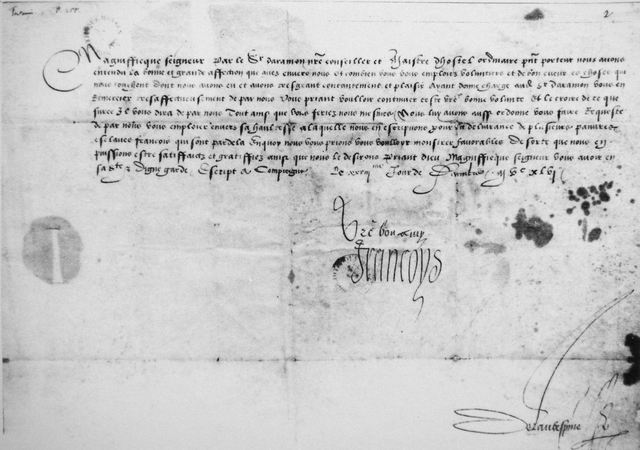 2
Magnifficque seigneur par le Sr daramon nre conseiller et Maistre dhostel ordinaire pnt porteur nous avons
entendu la bonne et grande affection que avez envers nous et combien vous vous employez voluntiers et de bon cueur es choses qui
nous touchent dont nous avons eu et avons tresgrant contentement et plaisir Ayant donne charge aud Sr Daramon vous en
Remercier tresaffectueusement de par nous Vous priant voulloir continuer ceste vre bonne volunte Et le croire de ce que
sur ce Il vous dira de par nous Tout ainsi que vous feriez nous mesmes Nous luy avons aussi ordonne vous faire Requeste
de par nous vous employer envers sa haultesse a laquelle nous en escripvons pour la delivrance de plusieurs pauvres
esclaves francois qui sont par dela En quoy nous vous prions vous voulloir monstrer favorables De sorte que nous en
puissions estre satisfaictz et gratiffiez ainsi que nous le desirons Priant dieu Magnifficque seigneur vous avoir en
sa ste et digne garde Escript a Compiegne Le Jour de
Vre bon amy
Francoys
Delaubespine